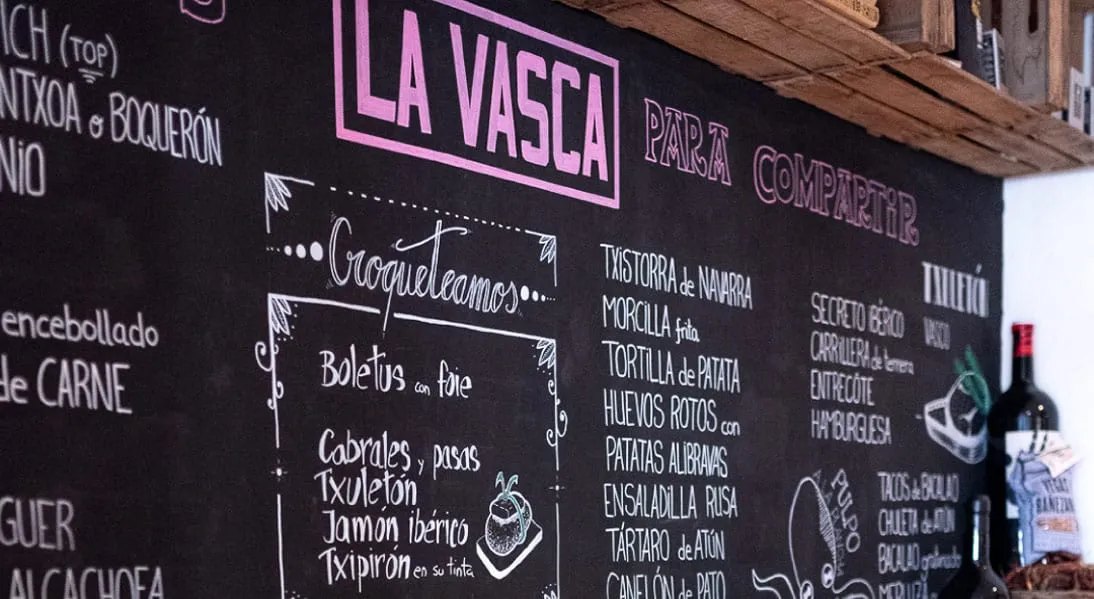 ICH (TOP)
NTXOA o BOQUERÓN
NIO
encebollado
de CARNE
GUER
ALCACHOFA
LA VASCA
Croqueteamos
Boletus con foie
Cabrales y pasas
Txuletón
Jamón ibérico
Txipirón en su tinta
PARA COMPARTIR
TXISTORRA de NAVARRA
MORCILLA frita
TORTILLA de PATATA
HUEVOS ROTOS con
PATATAS ALIBRAVAS
ENSALADILLA RUSA
TÁRTARO de ATÚN
CANELÓN de PATO
SECRETO IBÉRICO
CARRILLERA de ternera
ENTRECÔTE
HAMBURGUESA
TXULETÓN
VASCO
PULPO
A LA
TACOS de BACALAO
CHULETA de ATÚN
BACALAO gratinado
MERLUZA